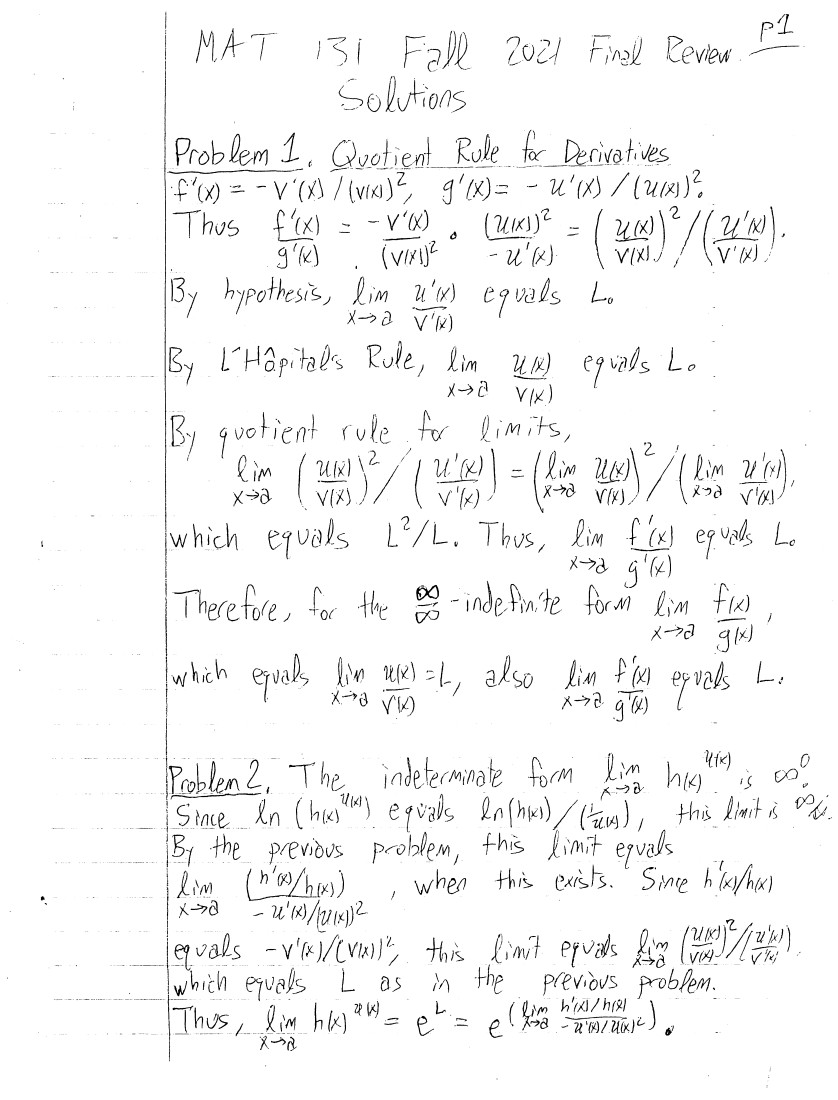 p1
MAT 131 Fall 2021 Final Review
Solutions
Problem 1. Quotient Rule for Derivatives
f'(x) = -v'(x)/(v(x))², g'(x) = -u'(x)/(u(x))².
Thus f'(x)/g'(x) = -v'(x)/(v(x))² · (u(x))²/-u'(x) = (u(x)/v(x))²/(u'(x)/v'(x)).
By hypothesis, lim x→a u'(x)/v'(x) equals L.
By L'Hôpital's Rule, lim x→a u(x)/v(x) equals L.
By quotient rule for limits,
lim x→a (u(x)/v(x))²/(u'(x)/v'(x)) = (lim x→a u(x)/v(x))²/(lim x→a u'(x)/v'(x)),
which equals L²/L. Thus, lim x→a f'(x)/g'(x) equals L.
Therefore, for the ∞/∞-indefinite form lim x→a f(x)/g(x),
which equals lim x→a u(x)/v(x) = L, also lim x→a f'(x)/g'(x) equals L.
Problem 2. The indeterminate form lim x→a h(x)^u(x) is ∞⁰.
Since ln(h(x)^u(x)) equals ln(h(x))/(1/u(x)), this limit is ∞/∞.
By the previous problem, this limit equals
lim x→a (h'(x)/h(x))/-u'(x)/(u(x))², when this exists. Since h'(x)/h(x)
equals -v'(x)/(v(x))², this limit equals lim x→a (u(x)/v(x))²/(u'(x)/v'(x)),
which equals L as in the previous problem.
Thus, lim x→a h(x)^u(x) = e^L = e^(lim x→a h'(x)/h(x)/-u'(x)/u(x)²).